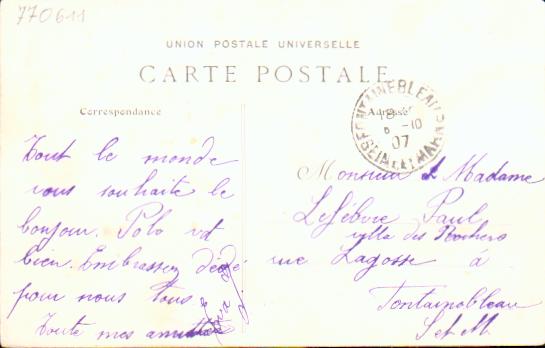 770611
UNION POSTALE UNIVERSELLE
CARTE POSTALE
Correspondance
Adresse
FONTAINEBLEAU
18
6 -10
07
SEINE ET MARNE
Tout le monde
vous souhaite le
bonjour. Polo est
bien. Embrassez Dédé
pour nous tous
Toute mes amitiés
Monsieur & Madame
Lefébvre Paul
villa des Rochers
rue Lagosse à
Fontainebleau
S et M.